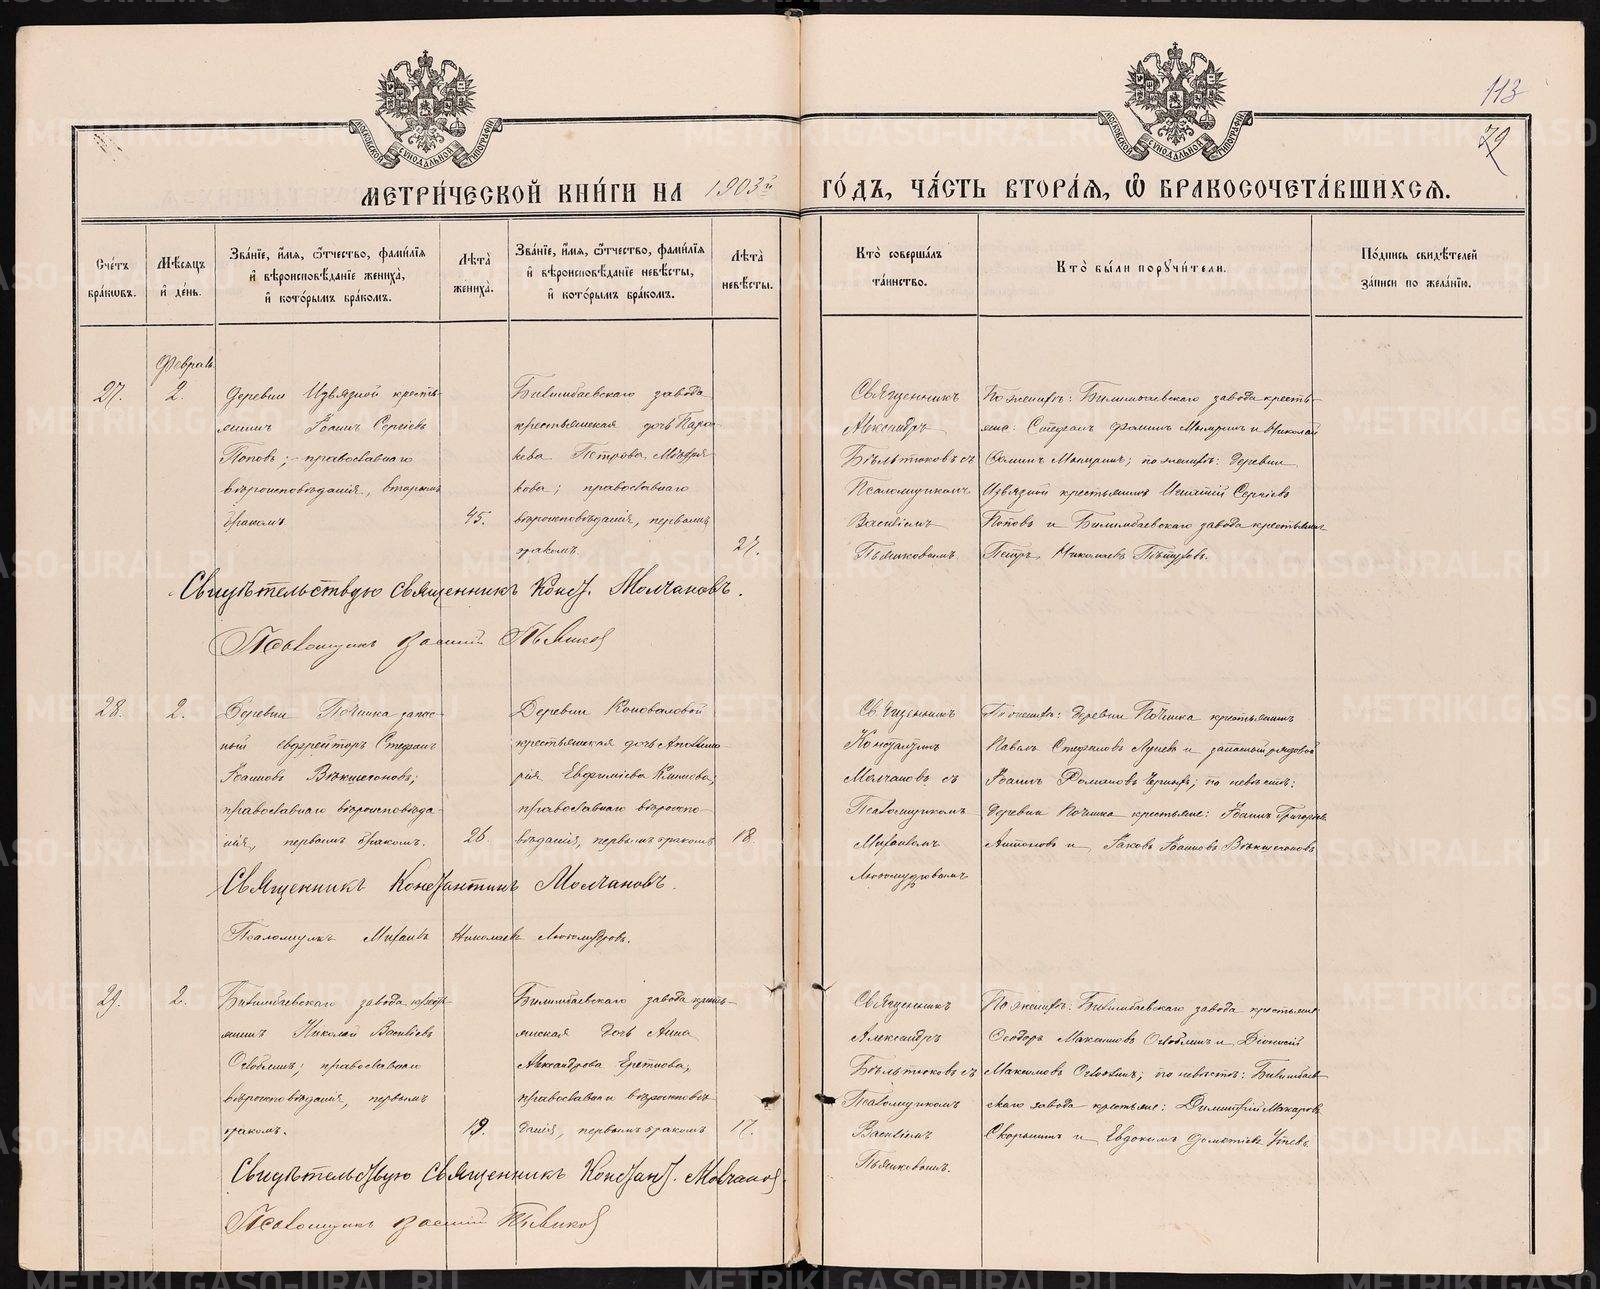 113
79
МОСКОВСКОЙ СѴНОДАЛЬНОЙ ТИПОГРАФІИ
МОСКОВСКОЙ СѴНОДАЛЬНОЙ ТИПОГРАФІИ
МЕТРИ́ЧЕСКОЙ КНИ́ГИ НА 1903й ГО́ДЪ, ЧА́СТЬ ВТОРА́Я, Ѡ БРАКОСОЧЕТА́ВШИХСЯ.
Сче́тъ бра́ковъ.
Мѣ́сяцъ и де́нь.
Зва́нїе, и́мя, ѻ́тчество, фами́лїя и҆ вѣроисповѣ́данїе жениха̀, и҆ кото́рымъ бра́комъ.
Лѣ́та жениха̀.
Зва́нїе, и́мя, ѻ́тчество, фами́лїя и҆ вѣроисповѣ́данїе невѣ́сты, и҆ кото́рымъ бра́комъ.
Лѣ́та невѣ́сты.
Кто̀ соверша́лъ та́инство.
Кто̀ бы́ли поручи́тели.
По́дпись свидѣ́телей за́писи по жела́нїю.
Февраль
27.
2.
Деревни Извязной кресть-
янинъ Іоаннъ Сергіевъ
Поповъ; православнаго
вѣроисповѣданія, вторымъ
бракомъ.
45.
Билимбаевскаго завода
крестьянская дочь Пара-
кева Петрова
православнаго
вѣроисповѣданія, первымъ
бракомъ.
27.
Священникъ
Александръ
Бѣльтюковъ съ
Псаломщикомъ
Василіемъ
Пьянковымъ.
По женихѣ: Билимбаевскаго завода кресть-
яне: Стефанъ Фоминъ и Николай
Фоминъ по Деревни
Извязной крестьянинъ Игнатій Сергіевъ
Поповъ и Билимбаевскаго завода крестьянинъ
Петръ Николаевъ
Свидѣтельствую священникъ Конст. Молчановъ.
Псаломщикъ Василій Пьянков
28.
2.
Деревни Починка запас-
ный ефрейторъ Стефанъ
Іоанновъ Векшегоновъ;
православнаго вѣроисповѣда-
нія, первымъ бракомъ.
26.
Деревни Коноваловой
крестьянская дочь Аполлина-
рія Евфиміева Климова;
православнаго вѣроиспо-
вѣданія, первымъ бракомъ
18.
Священникъ
Константинъ
Молчановъ съ
Псаломщикомъ
Михаиломъ
Любомудровымъ
По женихѣ: Деревни Починка крестьянинъ
Павелъ Стефановъ и запасный рядовой
Іоаннъ Романовъ по невѣстѣ:
Деревни Починка крестьяне: Іоаннъ Григорьевъ
Антоновъ и Іаковъ Іоанновъ Векшегоновъ
Священникъ Константинъ Молчановъ.
Псаломщикъ Михаилъ Николаевъ Любомудровъ.
29.
2.
Билимбаевскаго завода кресть-
янинъ Николай Василіевъ
православнаго
вѣроисповѣданія, первымъ
бракомъ.
19.
Билимбаевскаго завода кресть-
янская дочь Анна
Александрова Еретнова;
православнаго вѣроисповѣ-
данія, первымъ бракомъ
17.
Священникъ
Александръ
Бѣльтюковъ съ
Псаломщикомъ
Василіемъ
Пьянковымъ.
По женихѣ: Билимбаевскаго завода крестьяне
Ѳеодоръ Максимовъ и Діонисій
Максимовъ по невѣстѣ: Билимбаев-
скаго завода крестьяне: Димитрій Макаровъ
Скорынинъ и Евдокимъ
Свидѣтельствую Священникъ Констант. Молчанов.
Псаломщикъ Василій Пьянков
METRIKI.GASO-URAL.RU